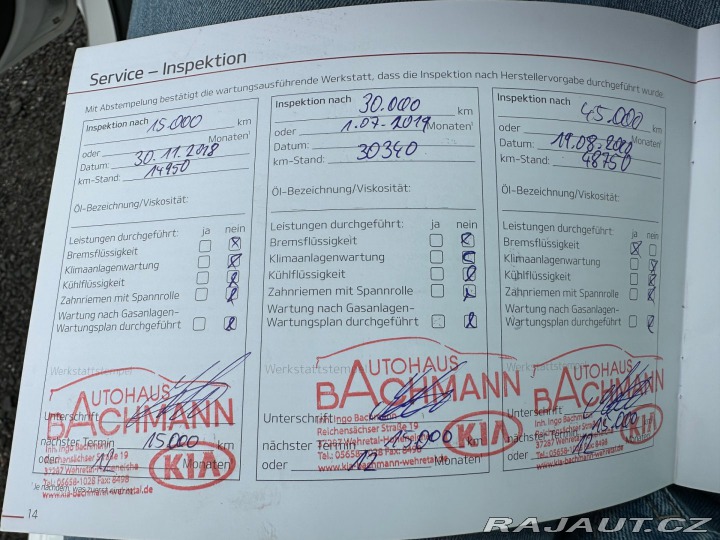 Service – Inspektion
Mit Abstempelung bestätigt die wartungsausführende Werkstatt, dass die Inspektion nach Herstellervorgabe durchgeführt wurde.
Inspektion nach
15.000 km
oder Monaten¹
Datum: 30.11.2018
km-Stand: 14950
Öl-Bezeichnung/Viskosität:
Leistungen durchgeführt: ja nein
Bremsflüssigkeit
Klimaanlagenwartung
Kühlflüssigkeit
Zahnriemen mit Spannrolle
Wartung nach Gasanlagen-
Wartungsplan durchgeführt
Werkstattstempel
AUTOHAUS
BACHMANN
Unterschrift
Inh. Ingo Bachmann
Reichensächser Straße 19
37287 Wehretal-
Tel.: 05658-1028 Fax: 8498
www.kia-bachmann-wehretal.de
KIA
nächster Termin 15.000 km
oder 12 Monaten¹
Inspektion nach 30.000 km
oder Monaten¹
Datum: 1.07.2019
km-Stand: 30340
Öl-Bezeichnung/Viskosität:
Leistungen durchgeführt: ja nein
Bremsflüssigkeit
Klimaanlagenwartung
Kühlflüssigkeit
Zahnriemen mit Spannrolle
Wartung nach Gasanlagen-
Wartungsplan durchgeführt
Werkstattstempel
AUTOHAUS
BACHMANN
Unterschrift
Inh. Ingo Bachmann
Reichensächser Straße 19
37287 Wehretal-
Tel.: 05658-1028 Fax: 8498
www.kia-bachmann-wehretal.de
KIA
nächster Termin 15.000 km
oder 12 Monaten¹
Inspektion nach
45.000 km
oder Monaten¹
Datum: 19.08.2020
km-Stand: 48750
Öl-Bezeichnung/Viskosität:
Leistungen durchgeführt: ja nein
Bremsflüssigkeit
Klimaanlagenwartung
Kühlflüssigkeit
Zahnriemen mit Spannrolle
Wartung nach Gasanlagen-
Wartungsplan durchgeführt
Werkstattstempel
AUTOHAUS
BACHMANN
Unterschrift
Inh. Ingo Bachmann
Reichensächser Straße 19
37287 Wehretal-
Tel.: 05658-1028 Fax: 8498
www.kia-bachmann-wehretal.de
KIA
nächster Termin 15.000
oder 12
¹ Je nachdem, was zuerst eintritt
14
RAJAUT.CZ